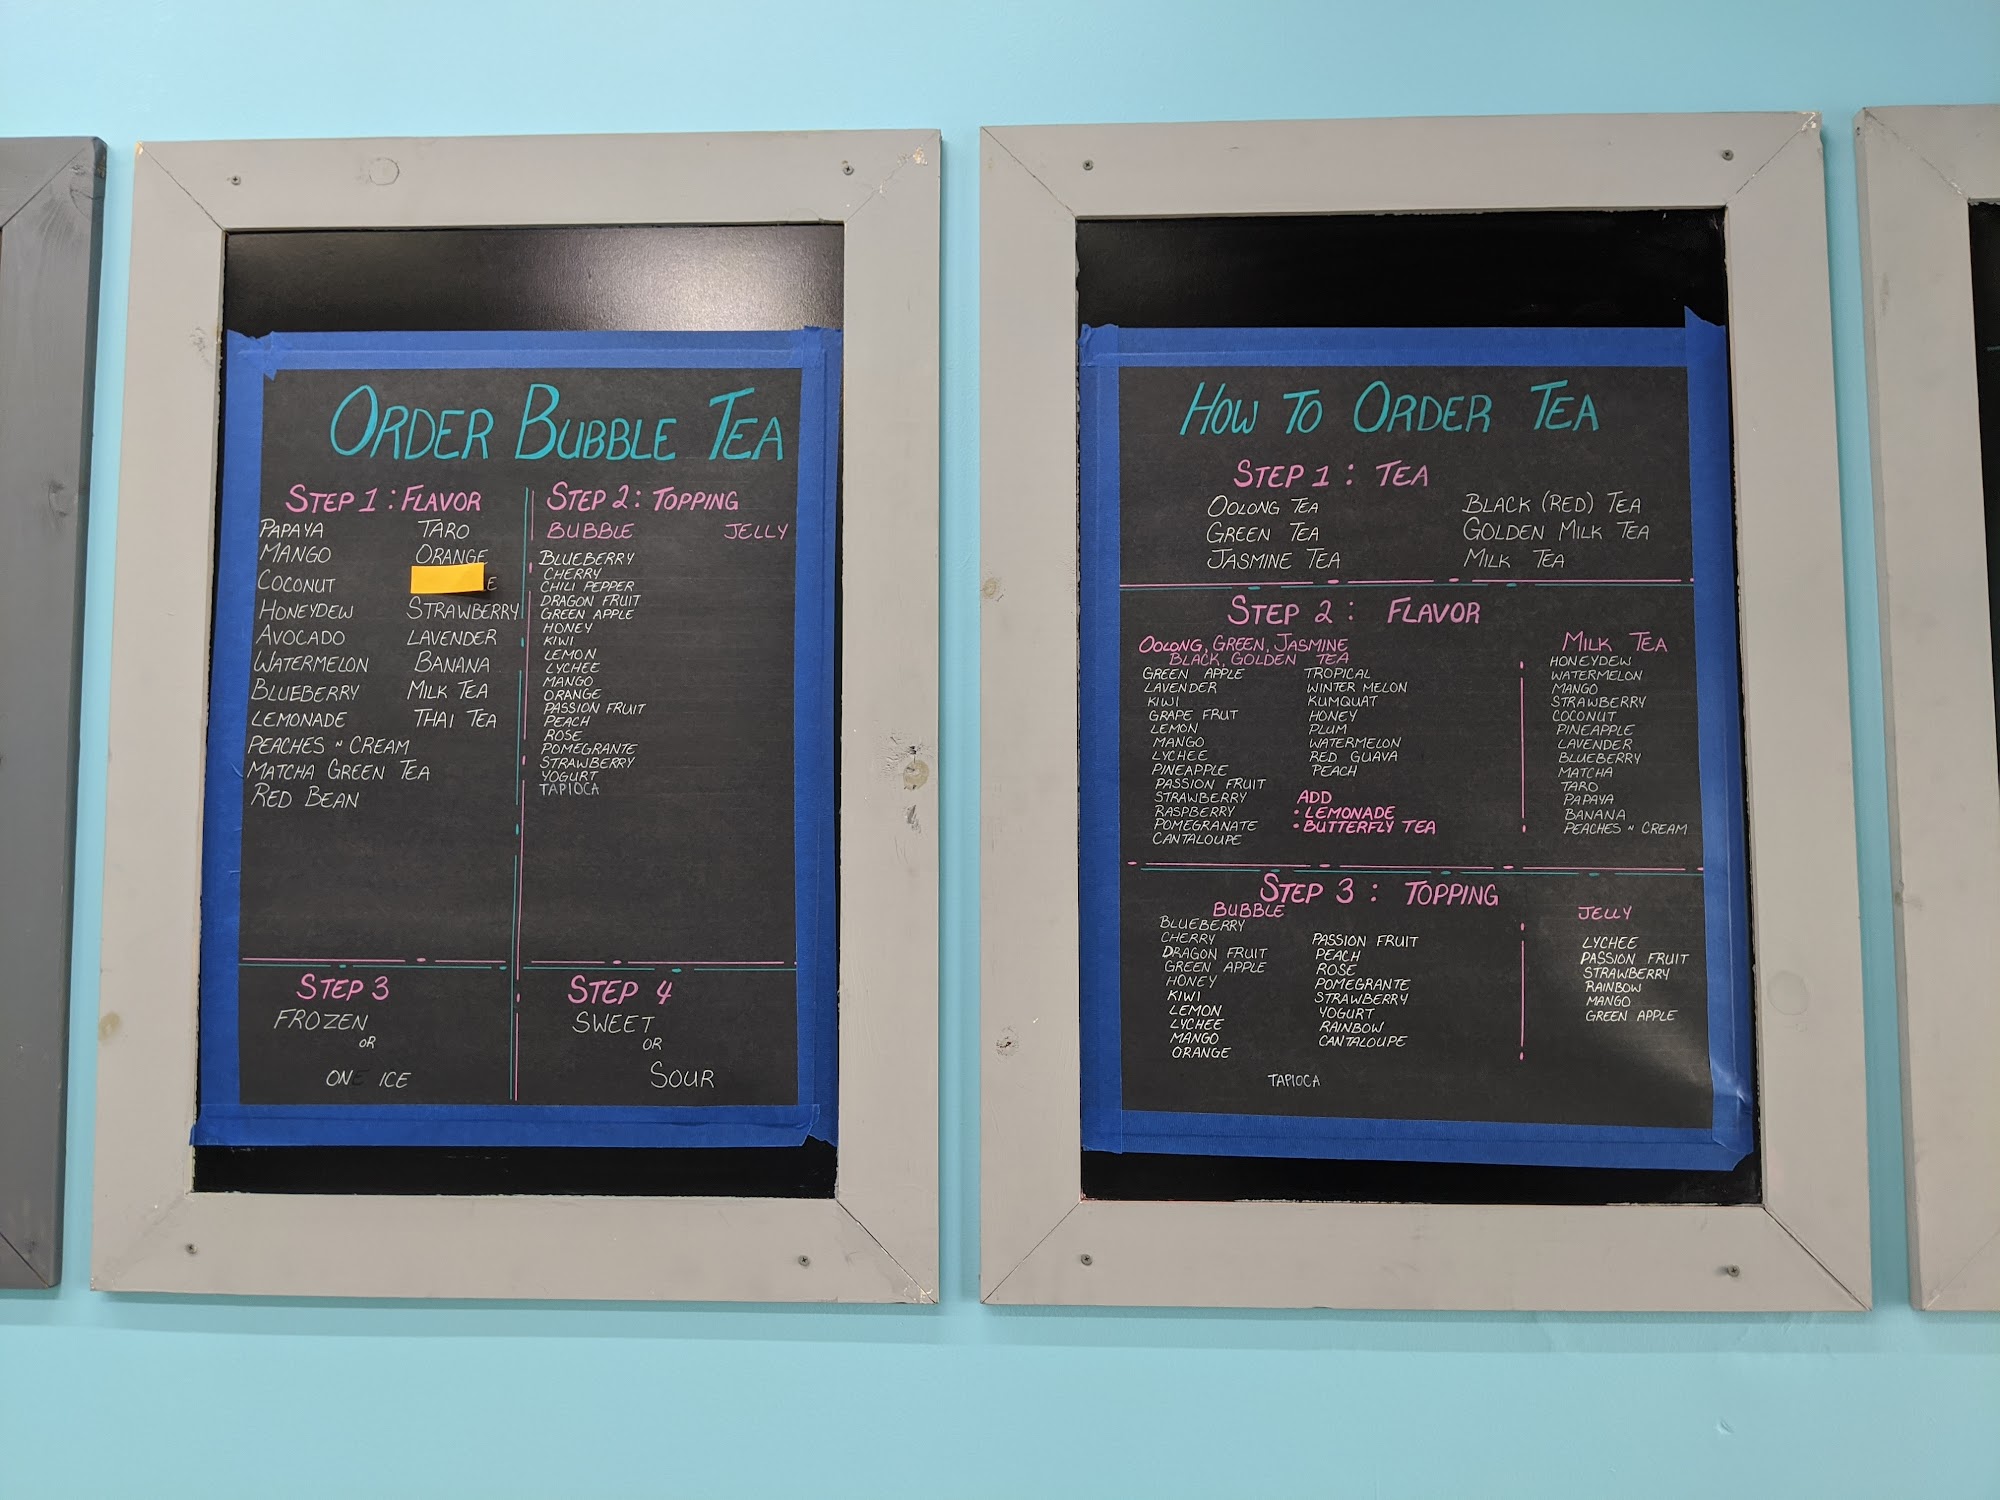 ORDER BUBBLE TEA
STEP 1: FLAVOR
PAPAYA
MANGO
COCONUT
HONEYDEW
AVOCADO
WATERMELON
BLUEBERRY
LEMONADE
PEACHES N CREAM
MATCHA GREEN TEA
RED BEAN
TARO
ORANGE
STRAWBERRY
LAVENDER
BANANA
MILK TEA
THAI TEA
STEP 2: TOPPING
BUBBLE
BLUEBERRY
CHERRY
CHILI PEPPER
DRAGON FRUIT
GREEN APPLE
HONEY
KIWI
LEMON
LYCHEE
MANGO
ORANGE
PASSION FRUIT
PEACH
ROSE
POMEGRANTE
STRAWBERRY
YOGURT
TAPIOCA
JELLY
STEP 3
FROZEN
OR
ONE ICE
STEP 4
SWEET
OR
SOUR
HOW TO ORDER TEA
STEP 1: TEA
OOLONG TEA
GREEN TEA
JASMINE TEA
BLACK (RED) TEA
GOLDEN MILK TEA
MILK TEA
STEP 2: FLAVOR
OOLONG, GREEN, JASMINE
BLACK, GOLDEN TEA
GREEN APPLE
LAVENDER
KIWI
GRAPE FRUT
LEMON
MANGO
LYCHEE
PINEAPPLE
PASSION FRUIT
STRAWBERRY
RASPBERRY
POMEGRANATE
CANTALOUPE
TROPICAL
WINTER MELON
KUMQUAT
HONEY
PLUM
WATERMELON
RED GUAVA
PEACH
ADD
• LEMONADE
• BUTTERFLY TEA
MILK TEA
HONEYDEW
WATERMELON
MANGO
STRAWBERRY
COCONUT
PINEAPPLE
LAVENDER
BLUEBERRY
MATCHA
TARO
PAPAYA
BANANA
PEACHES N CREAM
STEP 3: TOPPING
BUBBLE
BLUEBERRY
CHERRY
DRAGON FRUIT
GREEN APPLE
HONEY
KIWI
LEMON
LYCHEE
MANGO
ORANGE
PASSION FRUIT
PEACH
ROSE
POMEGRANTE
STRAWBERRY
YOGURT
RAINBOW
CANTALOUPE
TAPIOCA
JELLY
LYCHEE
PASSION FRUIT
STRAWBERRY
RAINBOW
MANGO
GREEN APPLE